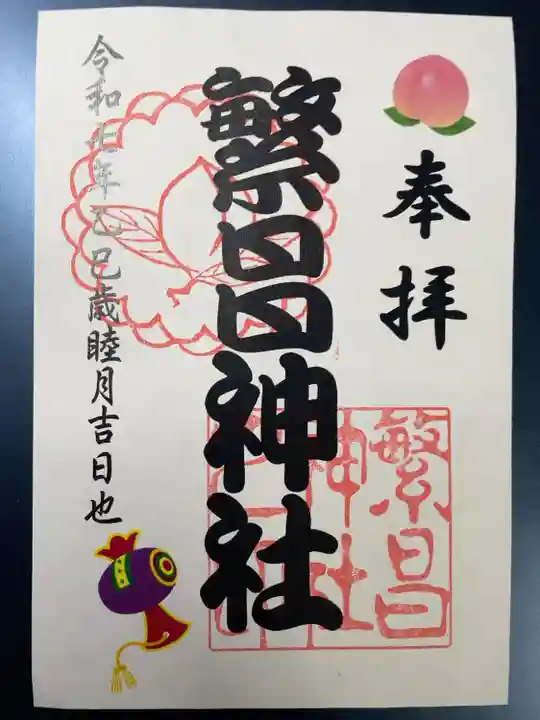 奉拝
繁昌神社
繁昌
神社
令和七年乙巳歳睦月吉日也